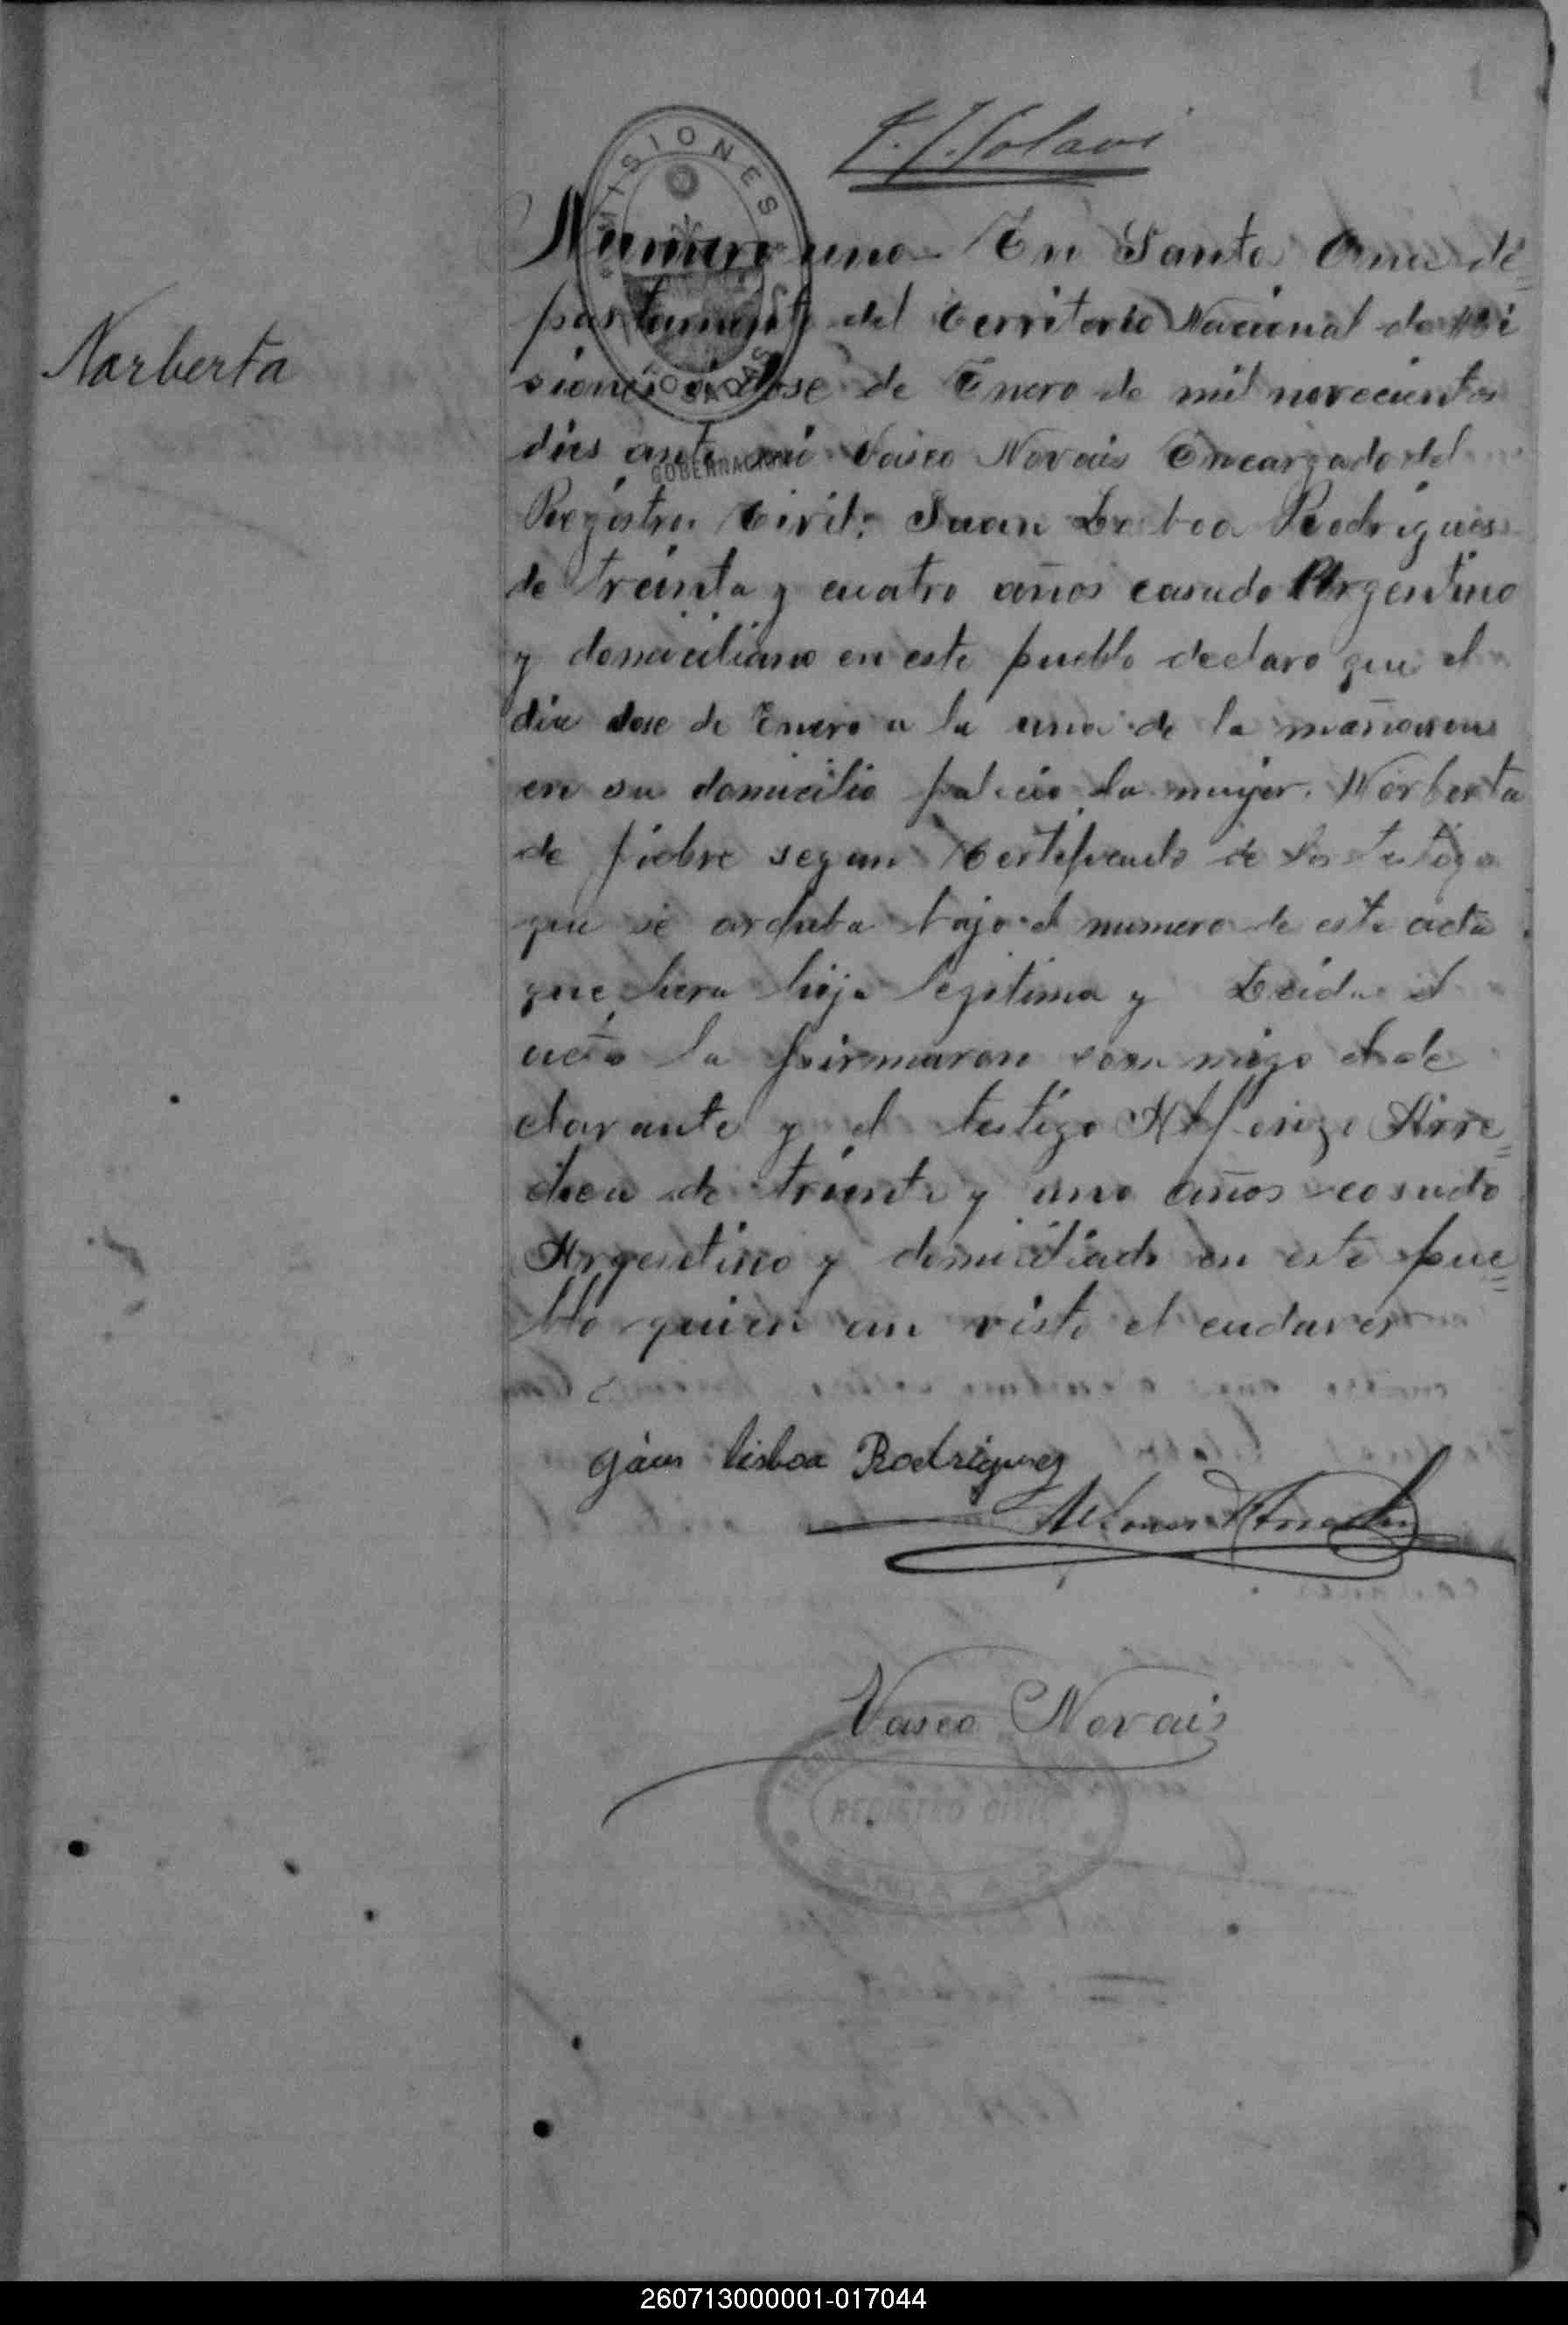 MISIONES
POSADAS
GOBERNACION
Norberta
Numero uno En Santa Ana de=
partamento del territorio Nacional de Mi
siones a dose de Enero de mil novecientos
dies ante mi Vasco Novais Encargado del
Registro Civil; Juan Lisboa Rodrigues
de treinta y cuatro años casado Argentino
y domiciliano en este pueblo declaro que el
dia dose de Enero a la una de la mañana
en su domicilio falecio la mujer Norberta
de fiebre segun Certificado de los testigos
que se archiba bajo el numero de esta acta
que hera hija legitima y Leida el
acta la firmaron con migo el de
clarante y el testigo Alfonzo Arre=
chea de treinta y uno años casado
Argentino y domiciliado en este pue=
blo quien an visto el cadaver
Lisboa Rodriguez
Vasco Novais
REGISTRO CIVIL
260713000001-017044